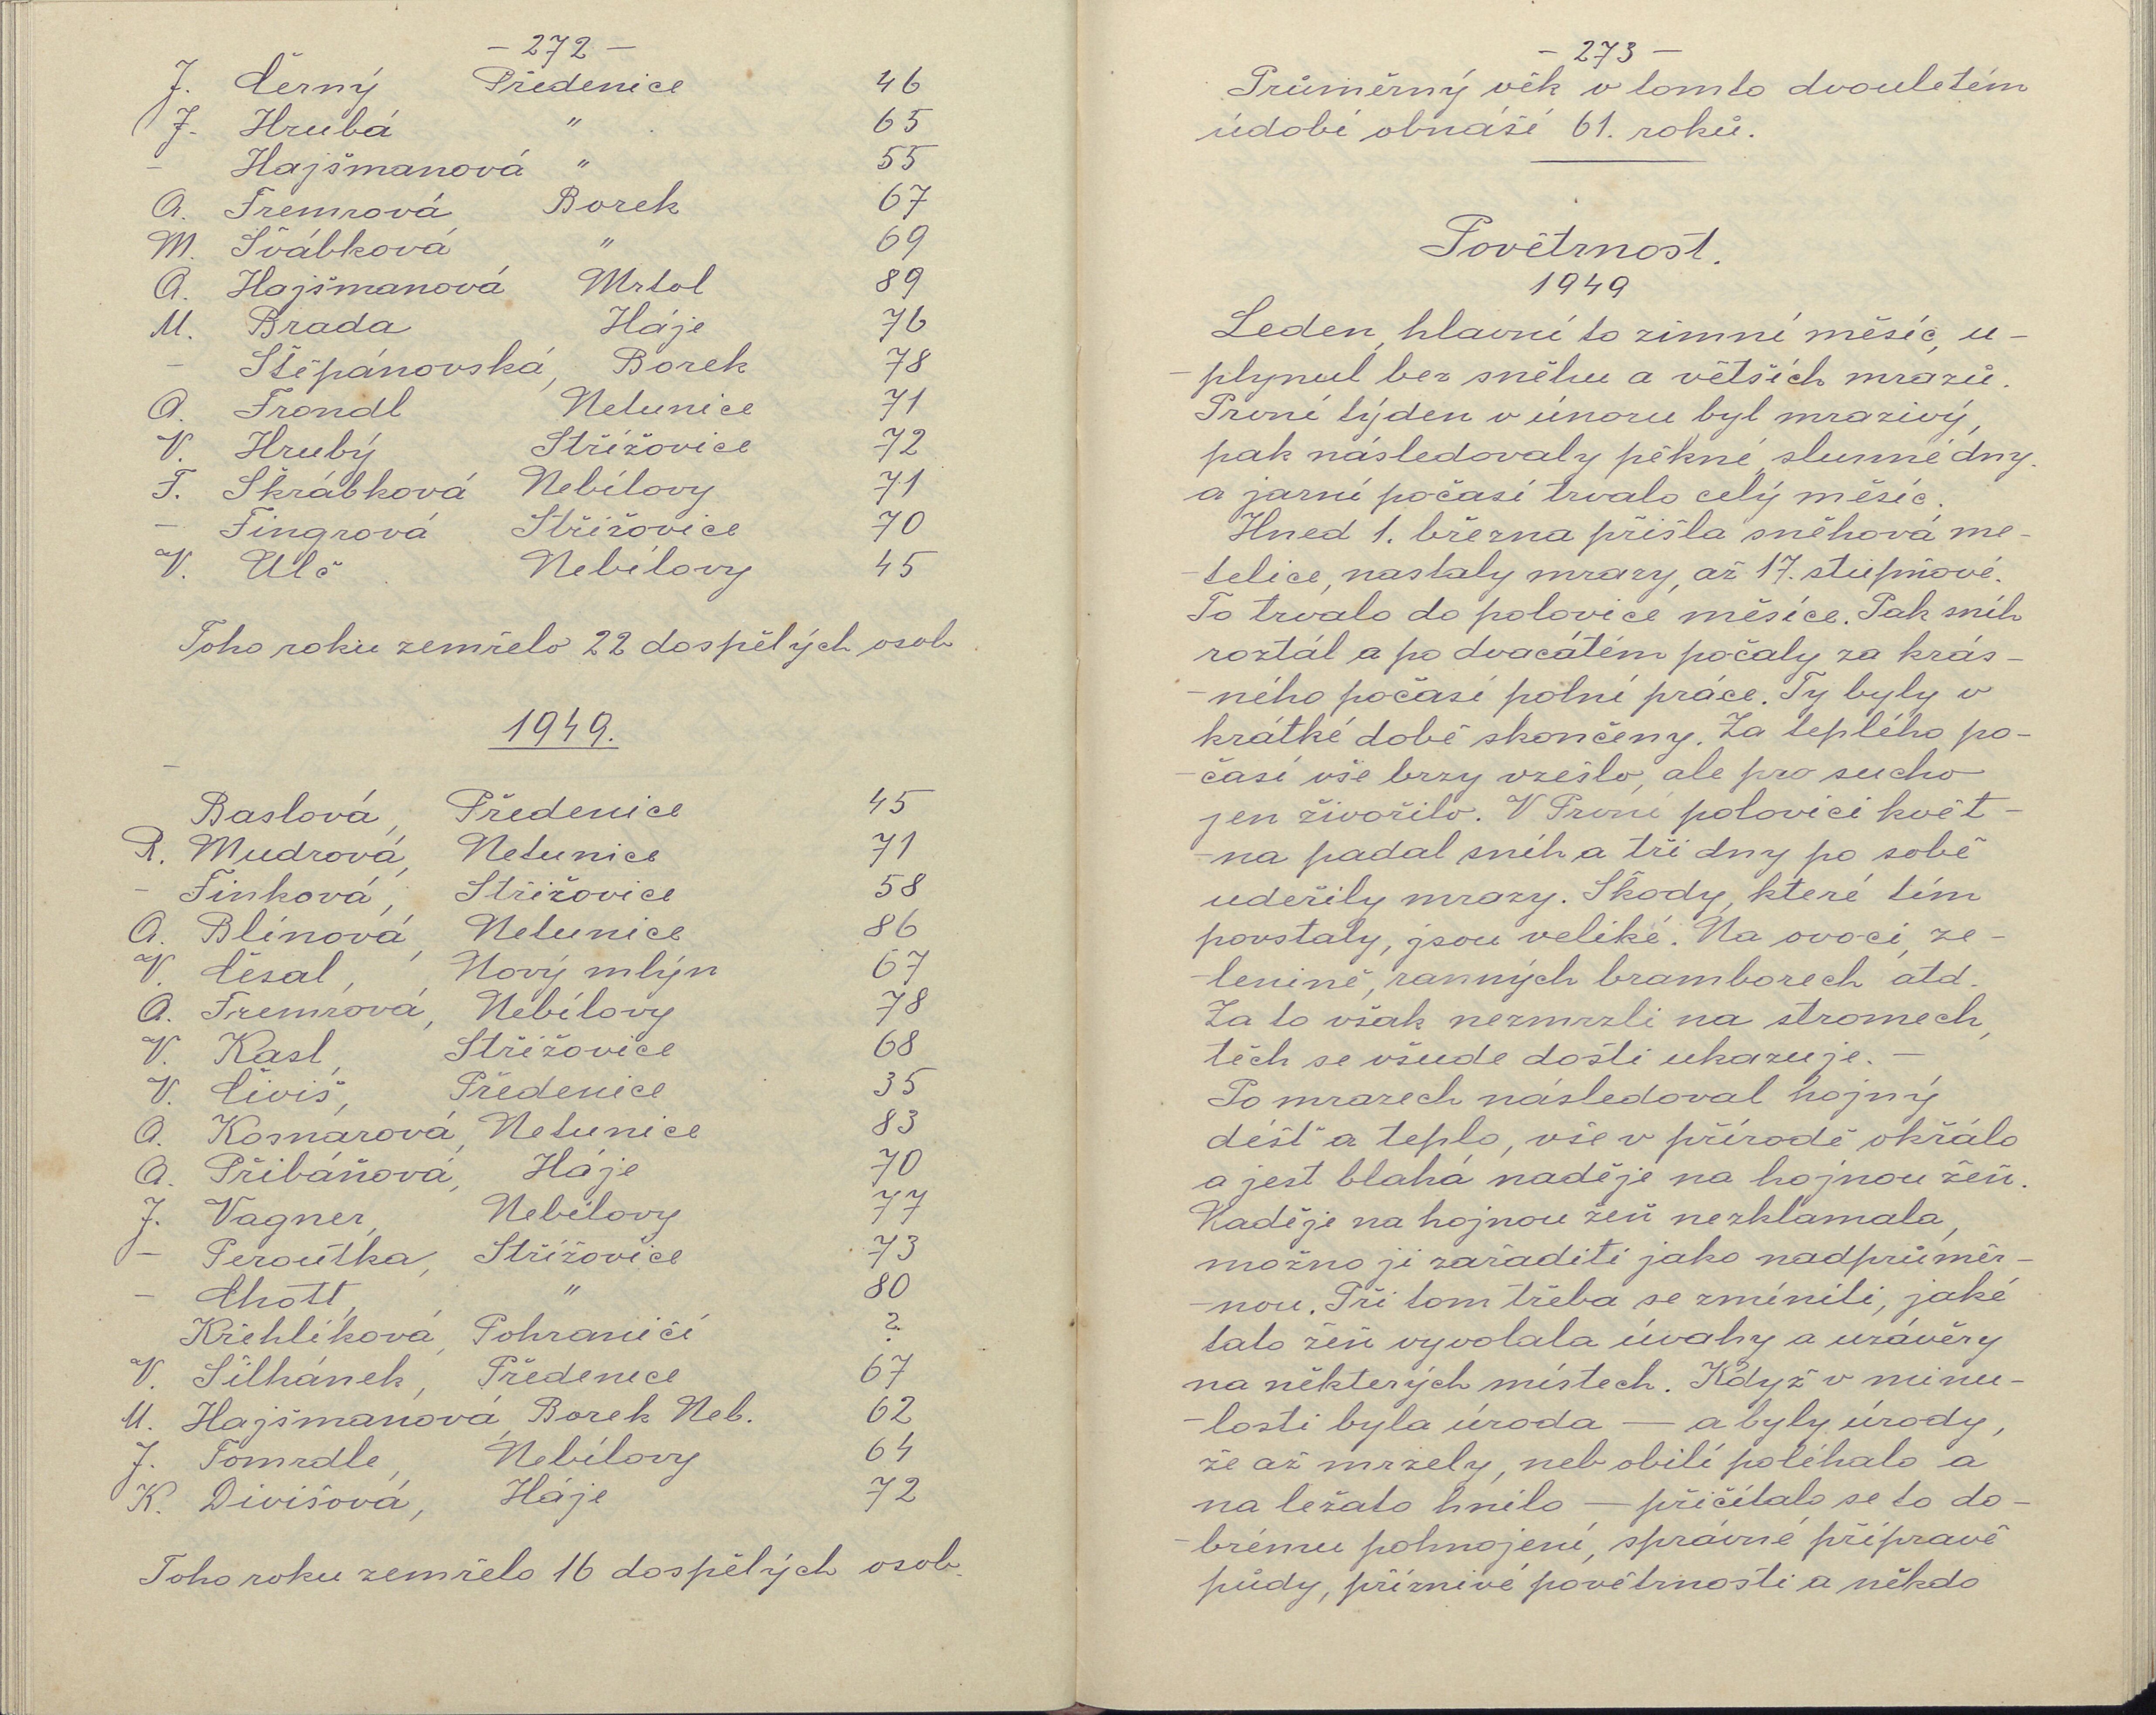 - 272 -
J. Černý Předenice 46
J. Hrubá " 65
- Hajšmanová " 55
A. Tremrová Borek 67
M. Švábková " 69
A. Hajšmanová Mrtol 89
M. Brada Háje 76
- Štěpánovská, Borek 78
A. Frondl Netunice 71
V. Hrubý Střížovice 72
F. Škrábková Nebílovy 71
- Fingrová Střížovice 70
V. Ulč Nebílovy 45
Toho roku zemřelo 22 dospělých osob
1949.
-
Baslová, Předenice 45
R. Mudrová, Netunice 71
- Finková, Střižovice 58
A. Blínová, Netunice 86
V. Česal, Nový mlýn 67
A. Tremrová, Nebílovy 78
V. Kasl, Střížovice 68
V. Čiviš, Předenice 35
A. Kosnarová, Netunice 83
A. Přibáňová, Háje 70
J. Vagner, Nebílovy 77
- Peroutka, Střížovice 73
- Chott, " 80
Křehlíková, Pohraničí ?
V. Šilhánek, Předenice 67
M. Hajšmanová, Borek Neb. 62
J. Tomrdle, Nebílovy 64
K. Divišová, Háje 72
Toho roku zemřelo 16 dospělých osob.
- 273 -
Průměrný věk v tomto dvouletém
údobí obnáší 61. roků.
Povětrnost.
1949
Leden, hlavní to zimní měsíc, u-
-plynul bez sněhu a větších mrazů.
První týden v únoru byl mrazivý,
pak následovaly pěkné, slunné dny.
a jarní počasí trvalo celý měsíc.
Hned 1. března přišla sněhová me-
-telice, nastaly mrazy, až 17. stupňové.
To trvalo do polovice měsíce. Pak sníh
roztál a po dvacátém počaly za krás-
-ného počasí polní práce. Ty byly v
krátké době skončeny. Za teplého po-
-časí vše brzy vzešlo, ale pro sucho
jen živořilo. V První polovici květ-
-na padal sníh a tři dny po sobě
udeřily mrazy. Škody, které tím
povstaly, jsou veliké. Na ovoci, ze-
-lenině, ranných bramborech atd.
Za to však nezmrzli na stromech,
těch se všude dosti ukazuje. -
Po mrazech následoval hojný
déšť a teplo, vše v přírodě okřálo
a jest blahá naděje na hojnou žeň.
Naděje na hojnou žeň nezklamala,
možno ji zařaditi jako nadprůměr-
-nou. Při tom třeba se zmíniti, jaké
tato žeň vyvolala úvahy a uzávěry
na některých místech. Když v minu-
-losti byla úroda — a byly úrody,
že až mrzely, neb obilí poléhalo a
na ležato hnilo — přičítalo se to do-
-brému pohnojení, správné přípravě
půdy, příznivé povětrnosti a někdo